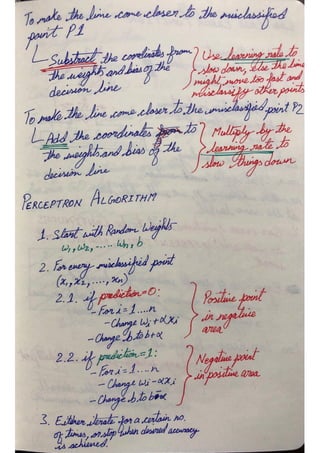 To make the line come closer to the misclassified
point P1
Subtract the coordinates from
the weights and bias of the
decision line
Use learning rate to
slow down, else the line
might move too fast and
misclassify other points
To make the line come closer to the misclassified point P2
Add the coordinates to
the weights and bias of the
decision line
Multiply by the
learning rate to
slow things down
PERCEPTRON ALGORITHM
1. Start with Random Weights
w₁, w₂, ..... wn, b
2. For every misclassified point
(x₁, x₂, ...., xn)
2.1. if prediction=0:
- For i = 1 .... n
- Change wi + αxi
- Change b to b+α
Positive point
in negative
area
2.2. if prediction=1:
- For i = 1 .... n
- Change wi - αxi
- Change b to b-α
Negative point
in positive area
3. Either iterate for a certain no.
of times, or stop when desired accuracy
is achieved.